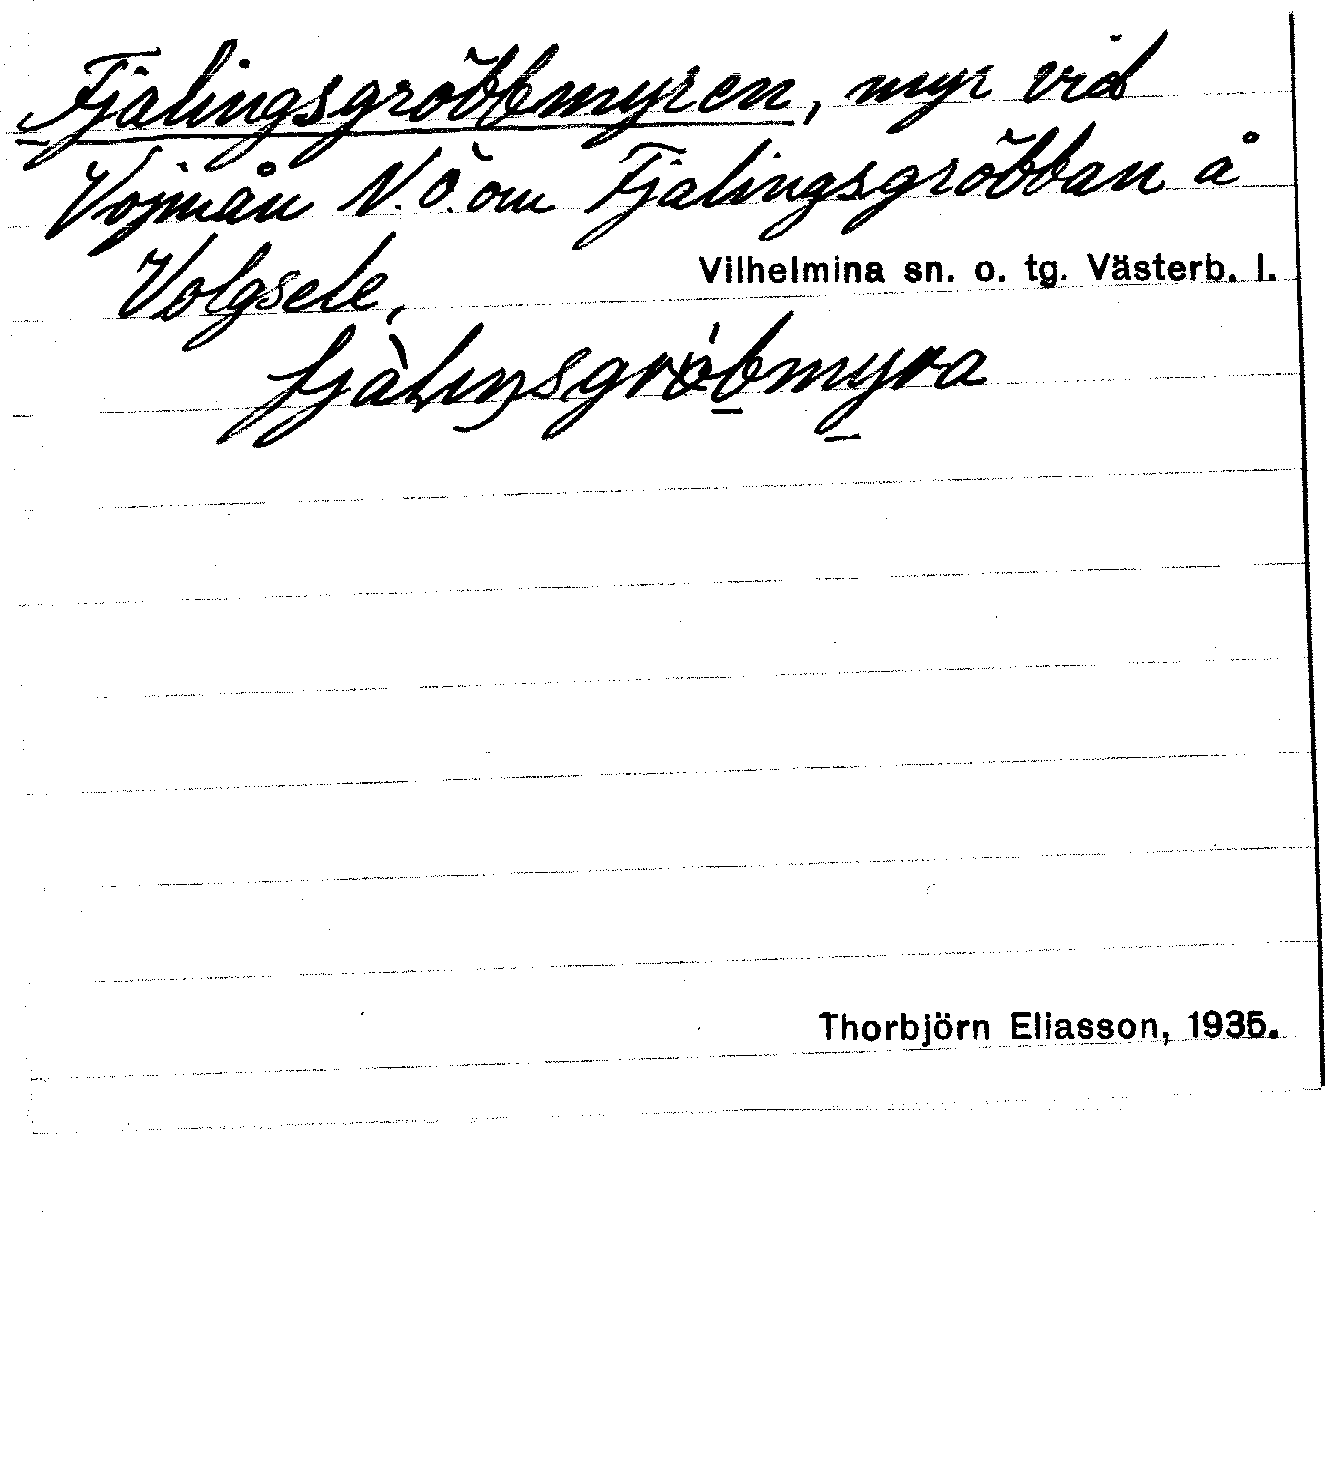 Fjalingsgröbbmyren, myr vid
Vojmån N.Ö. om Fjalingsgröbban å
Volgsele,
Vilhelmina sn. o. tg. Västerb. l.
fjàliŋsgrö́bmyra
Thorbjörn Eliasson, 1935.